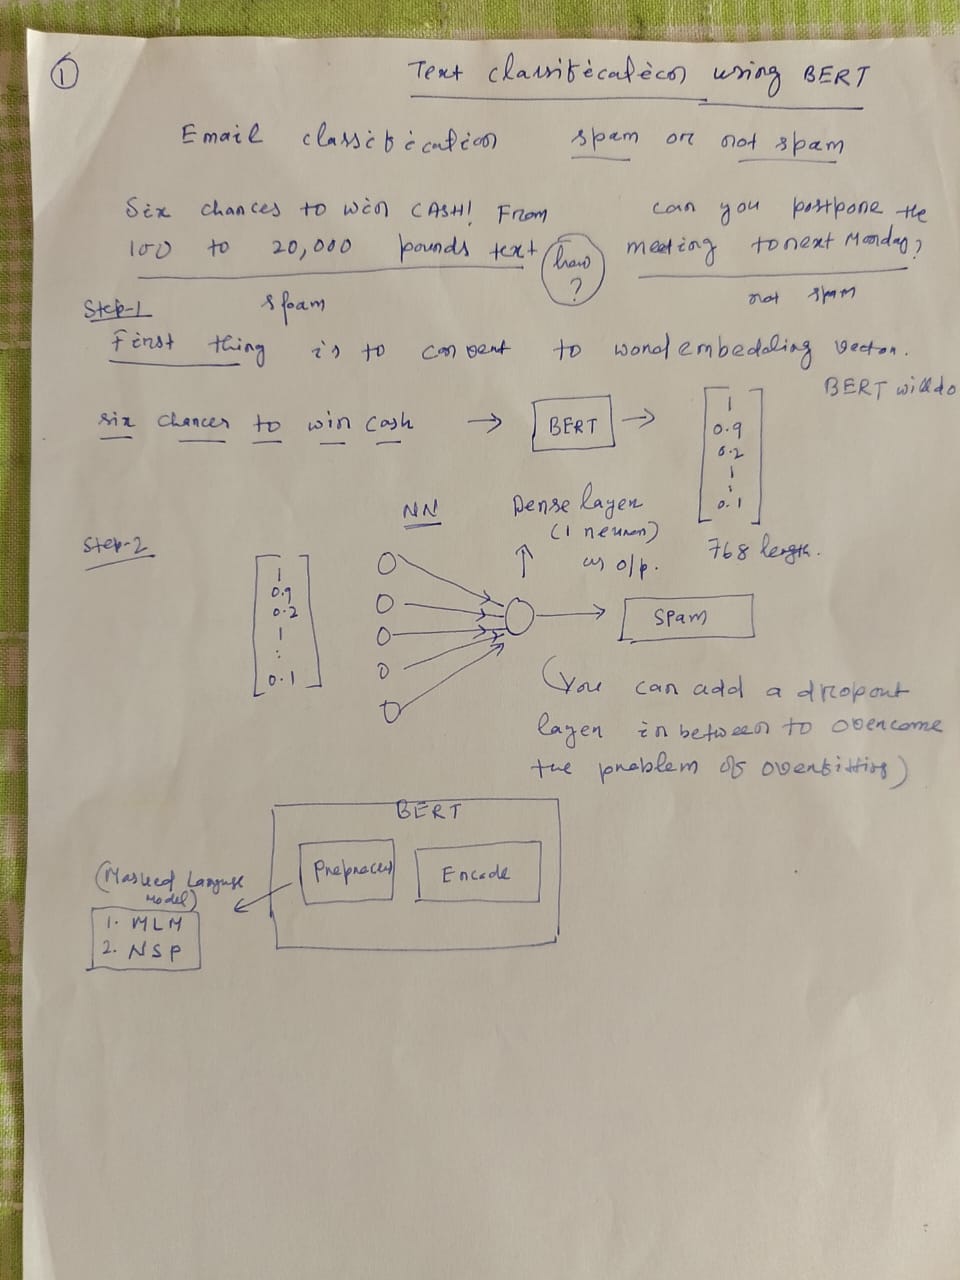 1
Text classification using BERT
Email classification spam or not spam
Six chances to win CASH! From
100 to 20,000 pounds text
spam
how
?
can you postpone the
meeting to next Monday?
not spam
Step-1
First thing is to convert to word embedding vector.
BERT will do
six chances to win cash → BERT →
1
0.9
0.2
1
:
0.1
768 length.
Step-2
1
0.9
0.2
1
:
0.1
NN
Dense layer
(1 neuron)
as o/p.
Spam
(You can add a dropout
layer in between to overcome
the problem of overfitting)
BERT
Preprocess
Encode
(Masked Language
Model)
1. MLM
2. NSP